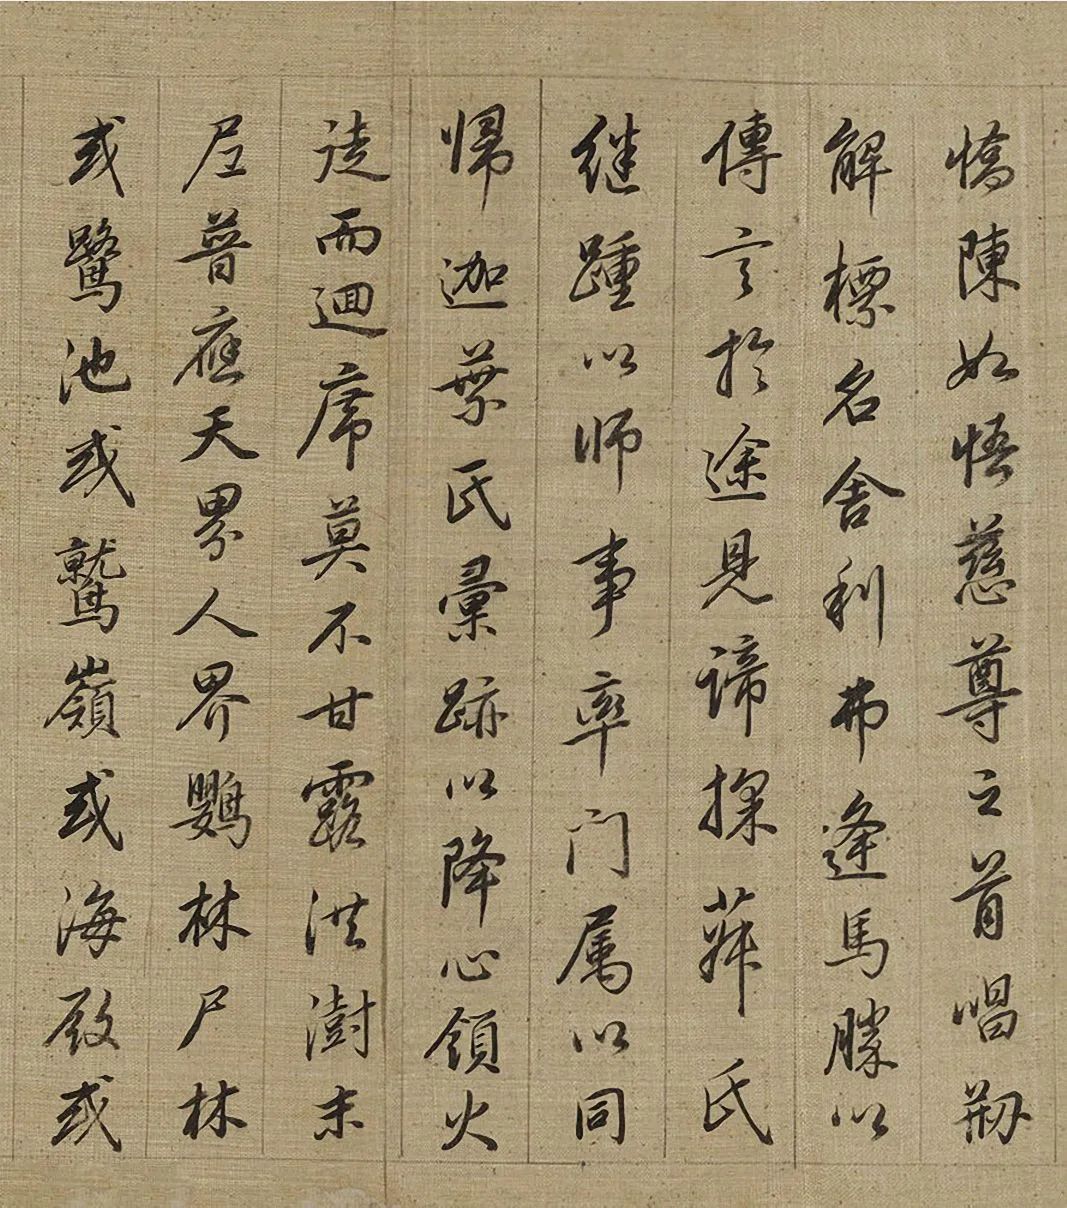 憍陳如悟慈尊之首唱刱
解標名舍利弗逢馬勝以
傳言於途見諦探菻氏
继踵以师事率门属以同
帰迦葉氏彙跡以降心領火
徒而迴席莫不甘露洪澍末
尼普應天界人界鸚林尸林
或鷺池或鷲嶺或海殿或